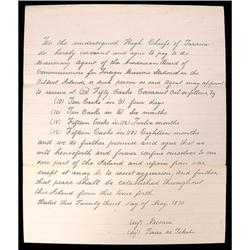 We the undersigned High Chiefs of Tarawa
do hereby covenant and agree to pay to the
Missionary Agent of the American Board of
Commissioners for Foreign Missions stationed in the
Gilbert Islands, or such Agent as may appoint
to receive it (50) Fifty Casks Cocoanut Oil as follows, viz
(10) Ten Casks in (4) four days
(10) Ten Casks in (6) Six months
(15) Fifteen Casks in (12) Twelve months
(15) Fifteen Casks in (18) Eighteen months
and we do further promise and agree that we
will henceforth and forever confine ourselves to our
own part of the Island and refrain from war
except it may be to resist aggression, and further
that peace shall be established throughout
this Island from this time forth
Dated this Twenty third day of May 1870